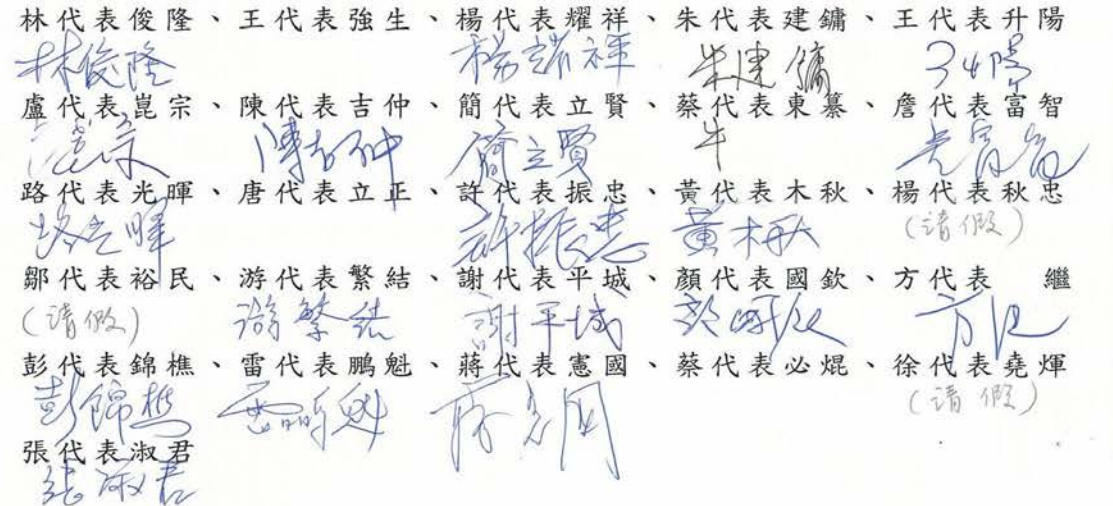 林代表俊隆、王代表強生、楊代表耀祥、朱代表建鏞、王代表升陽
林俊隆 楊耀祥 朱建鏞
盧代表崑宗、陳代表吉仲、簡代表立賢、蔡代表東纂、詹代表富智
陳吉仲 簡立賢
路代表光暉、唐代表立正、許代表振忠、黃代表木秋、楊代表秋忠
路光暉 許振忠 黃木秋 (請假)
鄒代表裕民、游代表繁結、謝代表平城、顏代表國欽、方代表 繼
(請假) 游繁結 謝平城 顏國欽
彭代表錦樵、雷代表鵬魁、蔣代表憲國、蔡代表必焜、徐代表堯煇
彭錦樵 雷鵬魁 (請假)
張代表淑君
張淑君